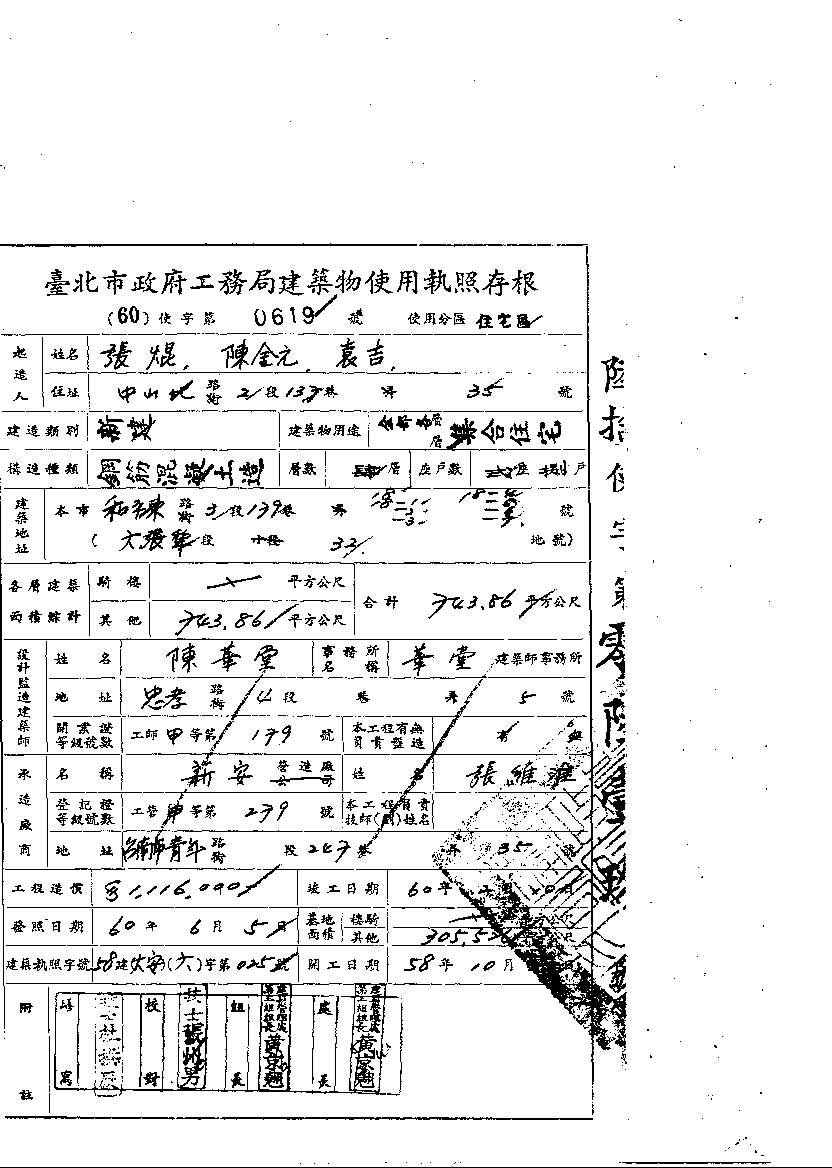 臺北市政府工務局建築物使用執照存根
(60)使字第 0619 號 使用分區 住宅區
起造人 姓名 張焜、陳金元、袁吉
住址 中山北路街 2段 133巷 弄 35 號
建造類別 新建 建築物用途 全部各層 集合住宅
構造種類 鋼筋混凝土造 層數 肆層 座戶數 貳座捌戶
建築地址 本市 和平東路街 3段139巷 弄 號
( 大張犂段 小段 32 地號)
各層建築面積綜計 騎樓 平方公尺 合計 743.86 平方公尺
其他 743.86 平方公尺
設計監造建築師 姓名 陳華堂 事務所名稱 華堂 建築師事務所
地址 忠孝路街 4段 巷 弄 5 號
開業證等級號數 工師甲等第 179 號 本工程有無負責監造 有 無
承造廠商 名稱 新安 營造廠公司 姓名 張維淮
登記證等級號數 工營甲等第 239 號 本工程負責技師(副)姓名
地址 台南市青年路街 段 247巷 弄 35 號
工程造價 1,116,090 竣工日期 60年 月 日
發照日期 60年 6月 5日 基地面積 騎樓
其他 305.52
建築執照字號 58建大安(六)字第025號 開工日期 58年10月
附註 繕寫 校對 技士張炳男 組長 黃京翹 處長 黃京翹
陸拾使字第零陸壹玖